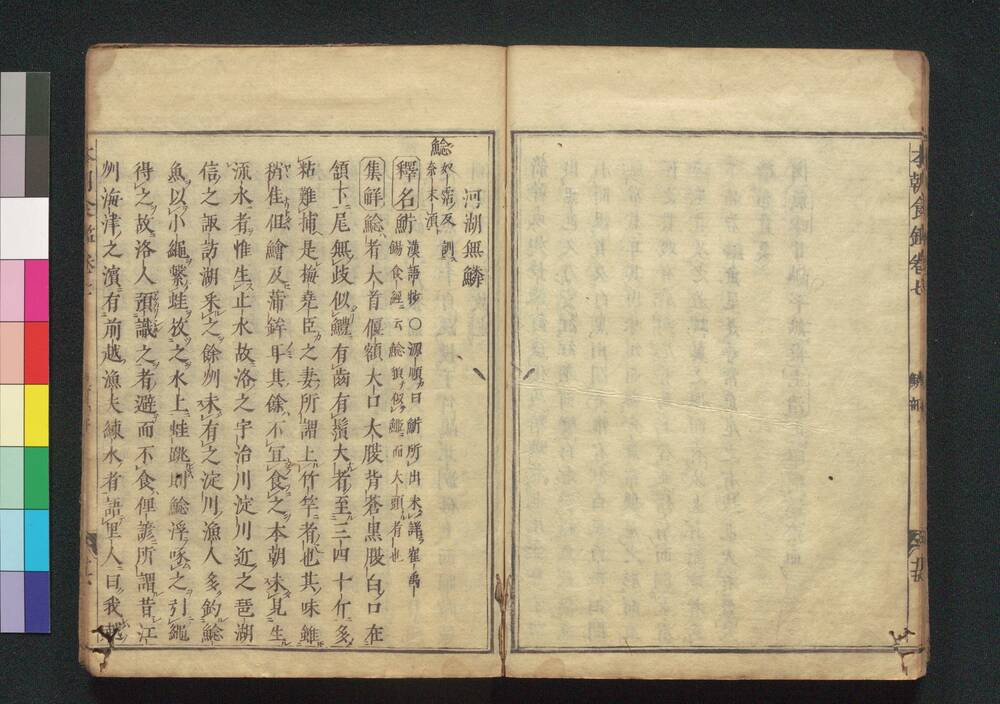 本朝食鑑卷七
鱗部
河湖無鱗
鯰 奴霑反訓
奈末須
釋名 魸 漢語抄〇源順曰魸所出未詳崔禹
錫食經云鯰貌似䱱而大頭者也
集解 鯰者大首偃額大口大腹背蒼黑腹白口在
頷下尾無歧似鱧有齒有鬚大者至三四十斤多
粘難捕是梅堯臣之妻所謂上竹竿者也其味雖
稍佳但鱠及蒲鉾耳其餘不宜食之本朝未見生
流水者惟生止水故洛之宇治川淀川近之琶湖
信之諏訪湖采之餘州未有之淀川漁人多釣鯰
魚以小繩繫蛙放之水上蛙跳則鯰浮吞之引繩
得之故洛人預識之者避而不食俚諺所謂昔江
州海津之濱有前越漁夫練水者語里人曰我越